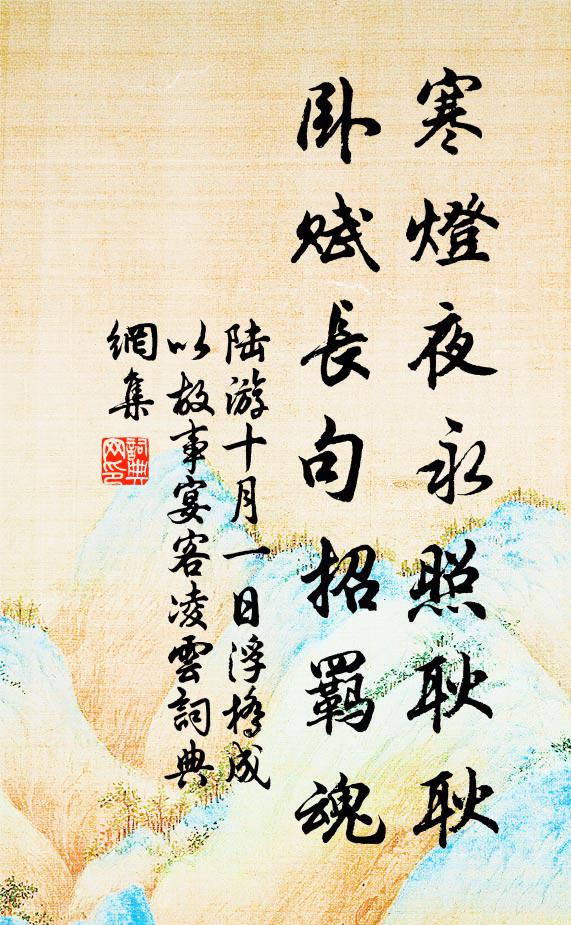 寒燈夜永照耿耿
臥賦長句招羈魂
陆游十月一日浮橋成
以故事宴客凌雲詞典
網集
詞典網印